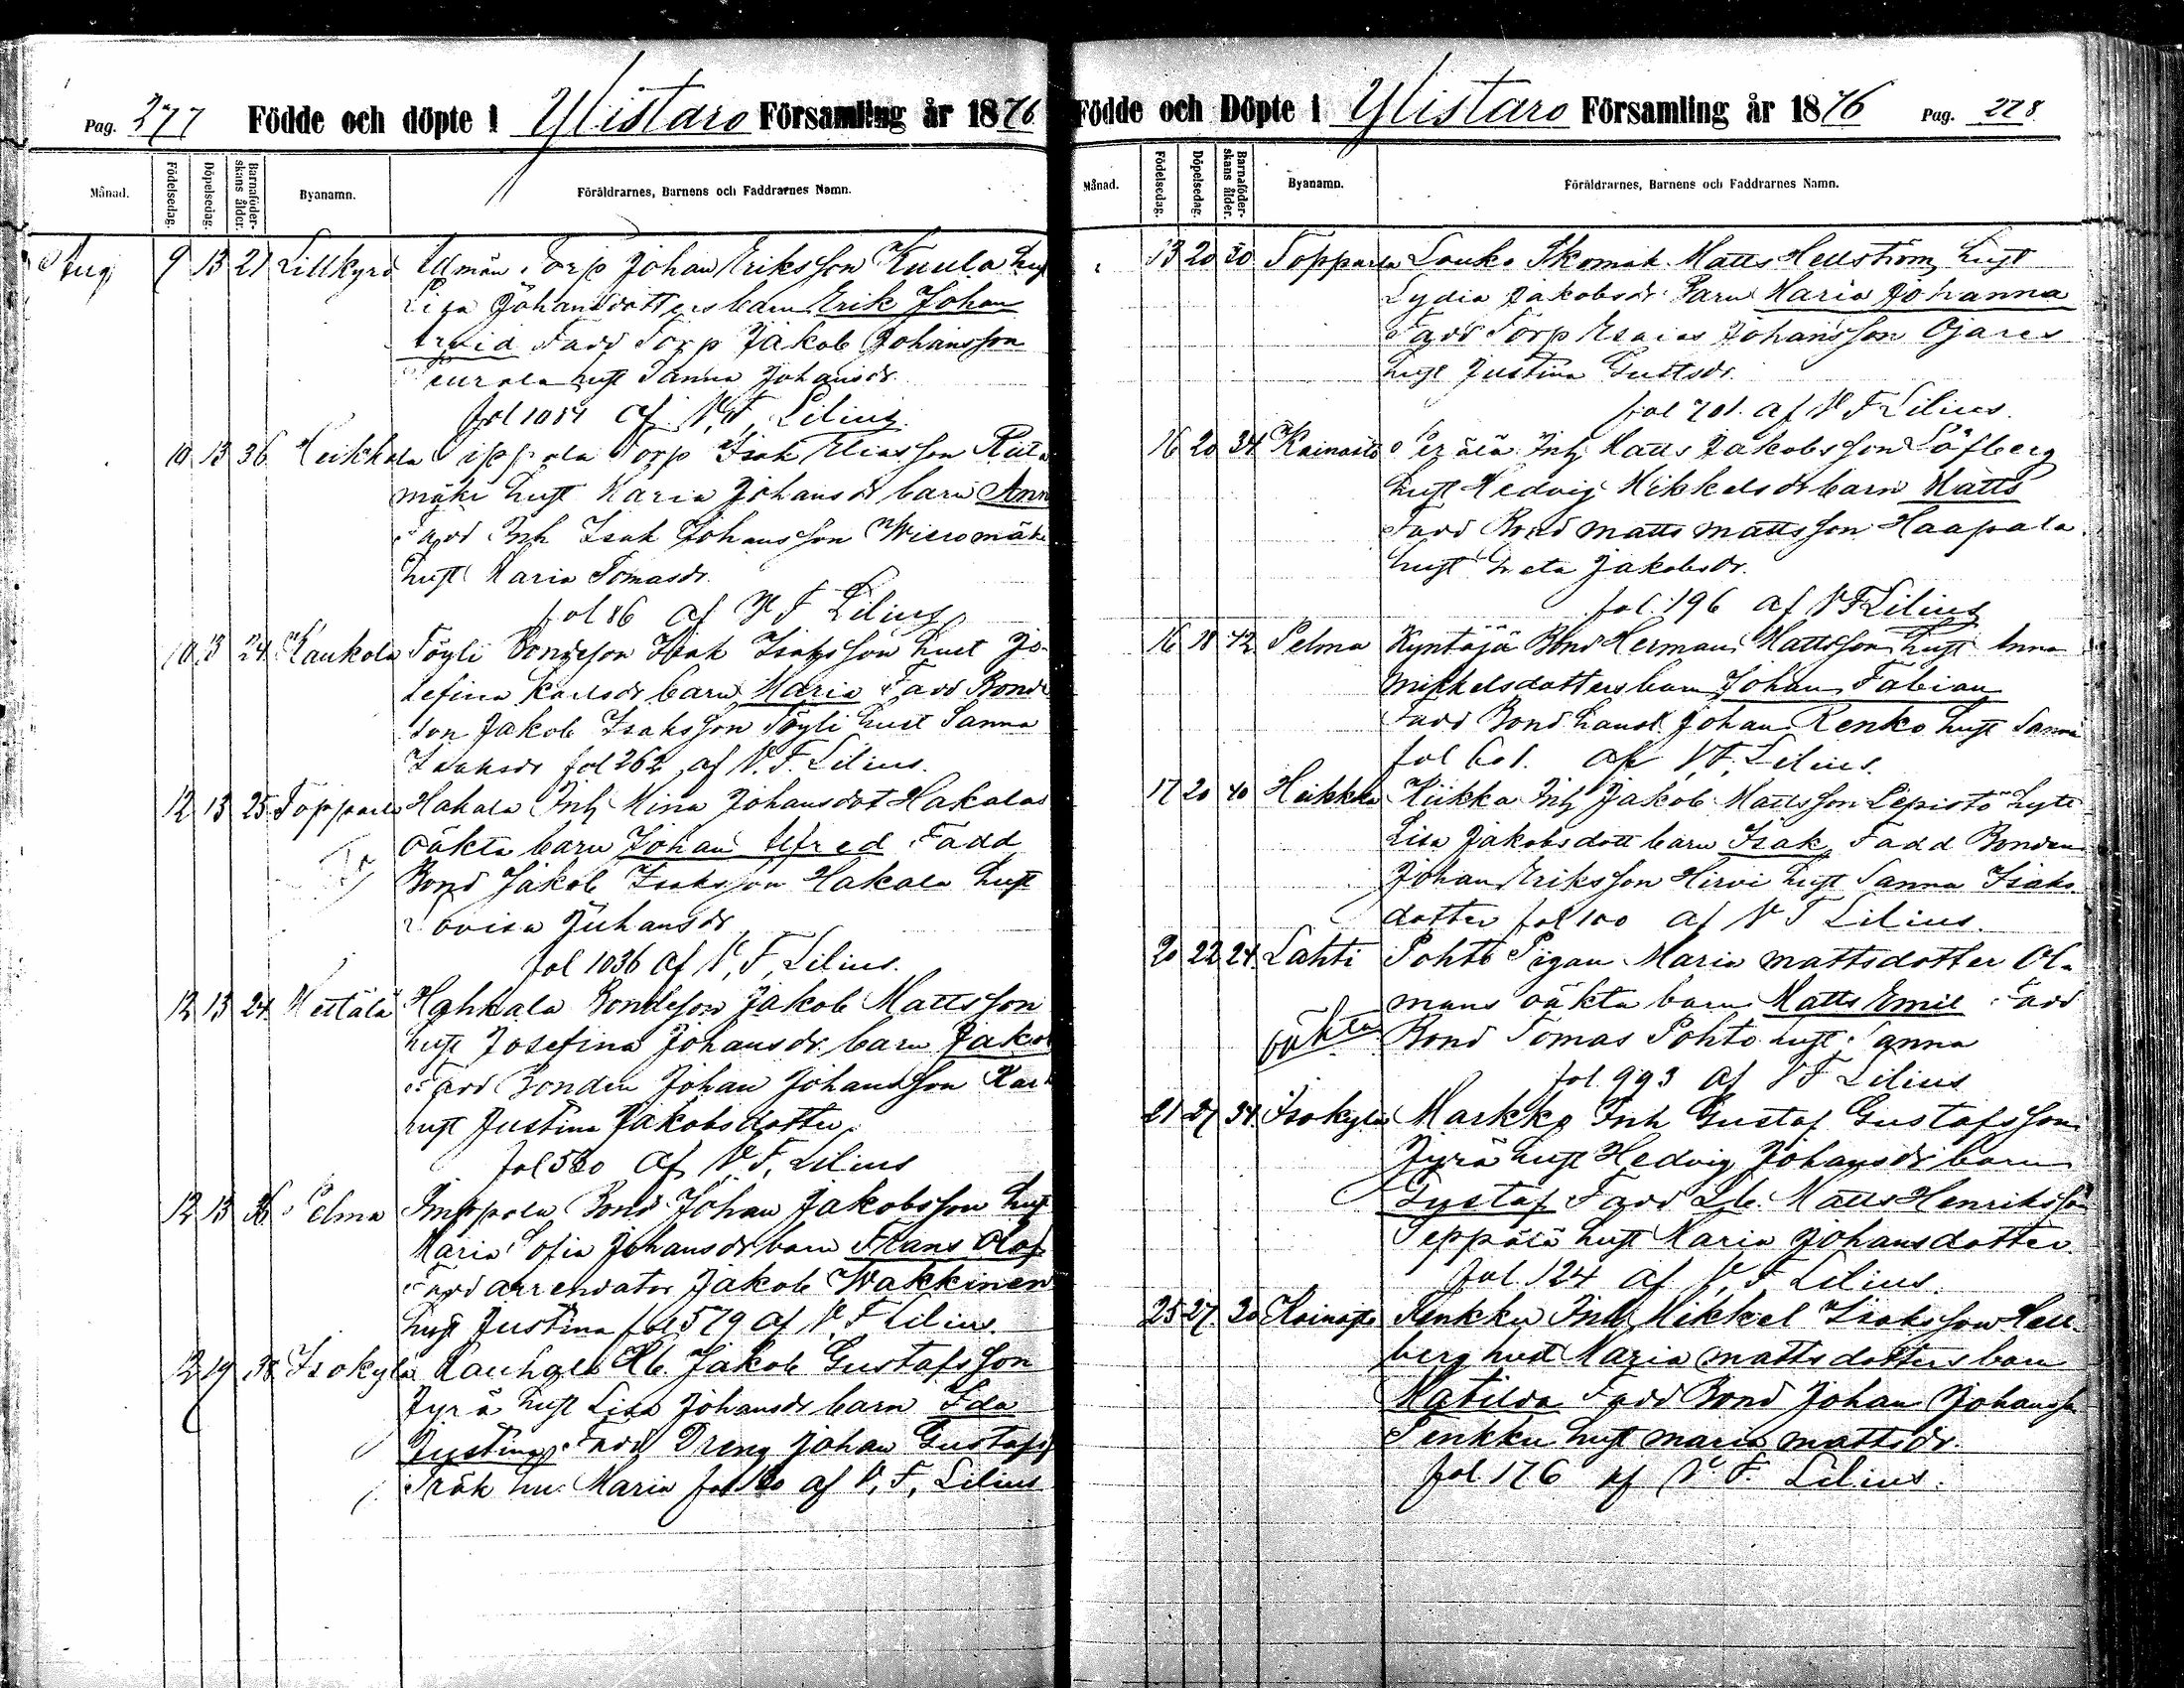 Pag. 277 Födde och döpte i Ylistaro Församling år 1876
Månad. Födelsedag. Döpelsedag. Barnaföderskans ålder. Byanamn. Föräldrarnes, Barnens och Faddrarnes Namn.
Aug 9 13 21 Lillkyro Torp Johan Eriksson Kuula hust
Lisa Johansdotters barn Erik Johan
Arvid Fadd Torp Jakob Johansson
hust Sanna Johansdr.
fol 1054 af V, F, Lilius
10 13 36 Heikkala Torp Isak Eliasson Riita
mäki hust Maria Johansdr barn Ann
Fadd Inh Isak Johansson
hust Maria Tomasdr.
fol 86 af V F Lilius
10 13 24 Kaukola Töyli Bondeson Isak Isaksson hust Jo-
sefina Karlsdr barn Maria Fadd Bonde
son Jakob Isaksson Töyli hust Sanna
Isaksdr fol 262 af V. F. Lilius.
12 13 25 Topparla Hakala Inh Mina Johansdot Hakalas
oäkta barn Johan Alfred Fadd
Bond Jakob Isaksson Hakala hust
Lovisa Juhansdr
fol 1036 af V, F, Lilius.
12 13 24 Hahkala Bondeson Jakob Mattsson
hust Josefina Johansdr. barn Jakob
Fadd Bonden Johan Johansson
hust Justina Jakobsdotter
fol 580 af V. F. Lilius
12 13 36 Pelma Bond Johan Jakobsson hust
Maria Sofia Johansdr barn Frans Olof
Fadd arrendator Jakob Wakkinen
hust Justina fol 579 af V. F Lilius.
12 19 38 Isokylä Kauhala Jakob Gustafsson
Jyrä hust Lisa Johansdr barn Ida
Justina Fadd Dreng Johan Gustafss
hu Maria fol af V, F, Lilius
Födde och Döpte i Ylistaro Församling år 1876 Pag. 278
Månad. Födelsedag. Döpelsedag. Barnaföderskans ålder. Byanamn. Föräldrarnes, Barnens och Faddrarnes Namn.
13 20 30 Topparla Louko Skomak. Matts Hellström hust
Lydia Jakobsdr Barn Maria Johanna
Fadd Torp Esaias Johansson Ojares
hust Justina
fol 701. af V F Lilius.
16 20 34 Kainasto Perälä Inh Matts Jakobsson Löfberg
hust Hedvig Mikkelsdr barn Matts
Fadd Bond Matts Mattsson Haapala
hust Greta Jakobsdr.
fol. 196 af V F Lilius
16 18 42 Pelma Kyntäjä Bond Herman Mattsson hust Anna
Mikkelsdotters barn Johan Fabian
Fadd Bond Johan Renko hust Sanna
fol 601. af V, F, Lilius.
17 20 40 Heikkla Kiikka Inh Jakob Mattsson Lepistö
Lisa Jakobsdott barn Isak Fadd Bonden
Johan Eriksson Hirvi hust Sanna Isaks
dotter fol 100 af V F Lilius.
20 22 24 Lahti Pohto Pigan Maria Mattsdotter Ola
mans oäkta barn Matts Emil Fadd
oäkta Bond Tomas Pohto hust Sanna
fol. 993 af V F Lilius
21 27 34 Isokylä Markko Inh Gustaf Gustafsson
Jyrä hust Hedvig Johansdr barn
Gustaf Fadd Matts Henriksson
Seppälä hust Maria Johansdotter
fol. 124 af V, F Lilius.
25 27 30 Kainasto Renkku Inh Mikkel Isaksson Hell-
berg hust Maria Mattsdotters barn
Matilda Fadd Bond Johan Johansson
hust Maria Mattsdr.
fol 176 af V. F. Lilius.